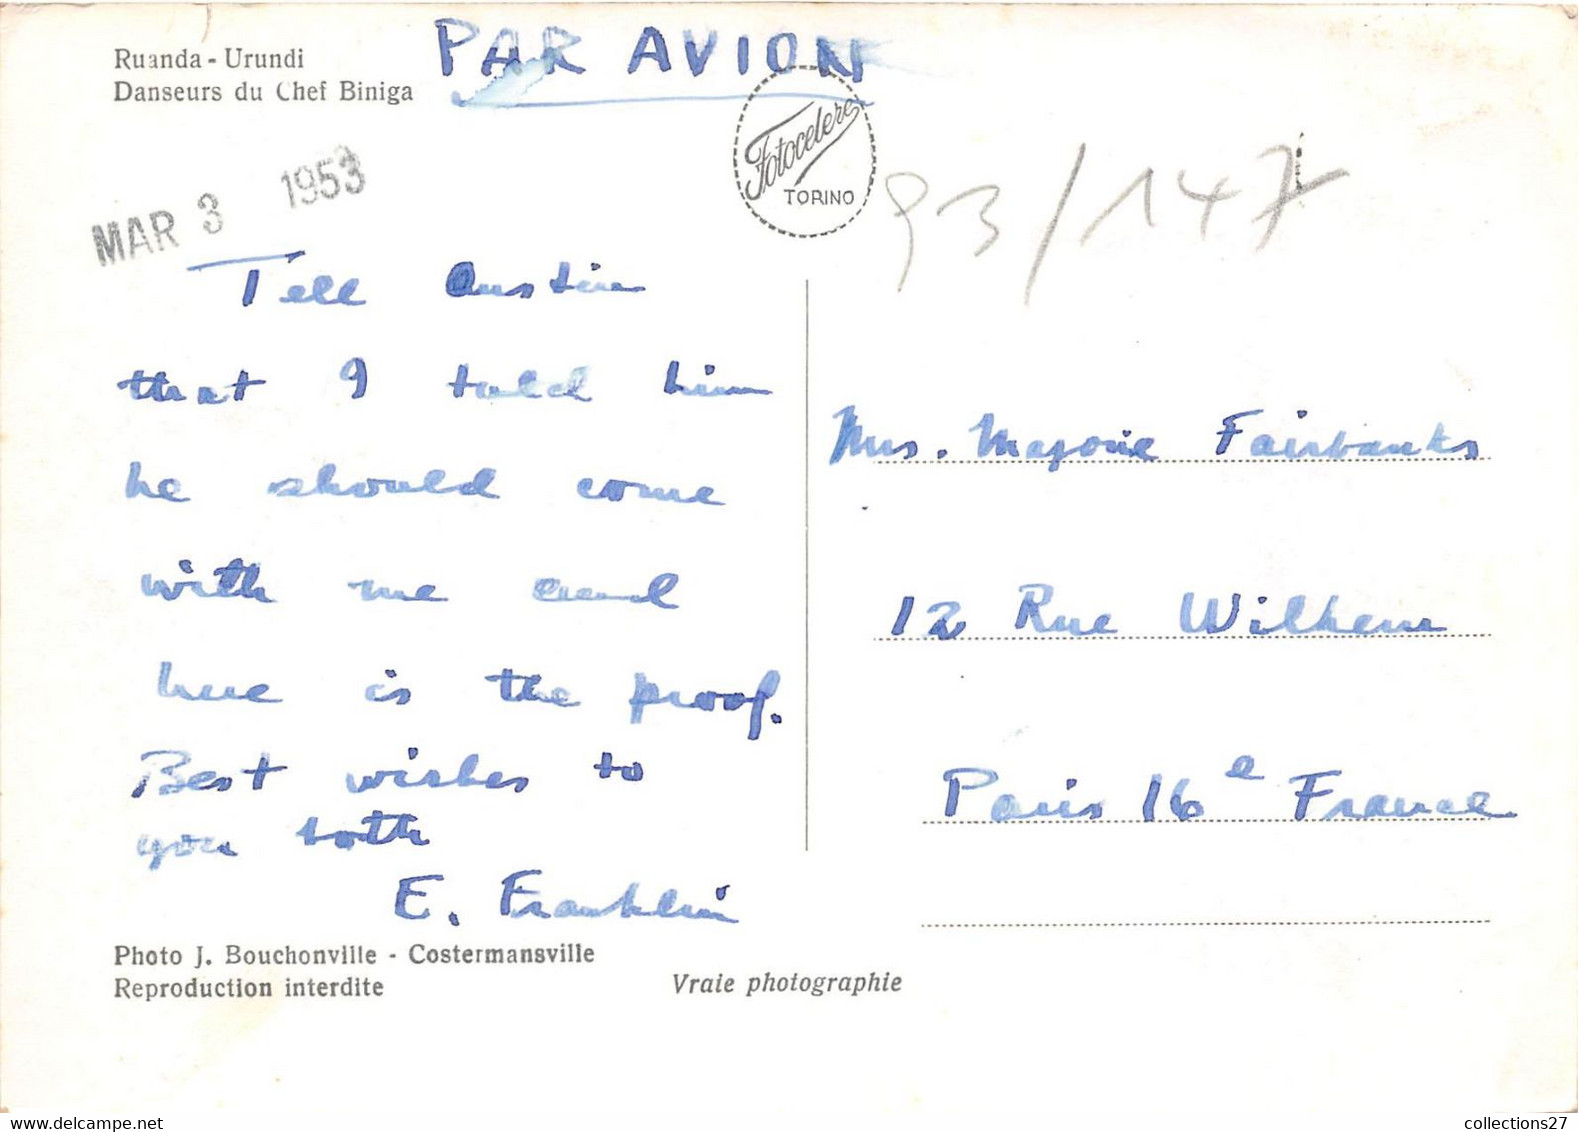 Ruanda - Urundi
Danseurs du Chef Biniga
PAR AVION
Fotocelere
TORINO
MAR 3 1953
93/147
Tell Austin
that I told him
he should come
with me and
here is the proof.
Best wishes to
you both
E. Franklin
Mrs. Majorie Fairbanks
12 Rue Wilhem
Paris 16e France
Photo J. Bouchonville - Costermansville
Reproduction interdite
Vraie photographie
collections27